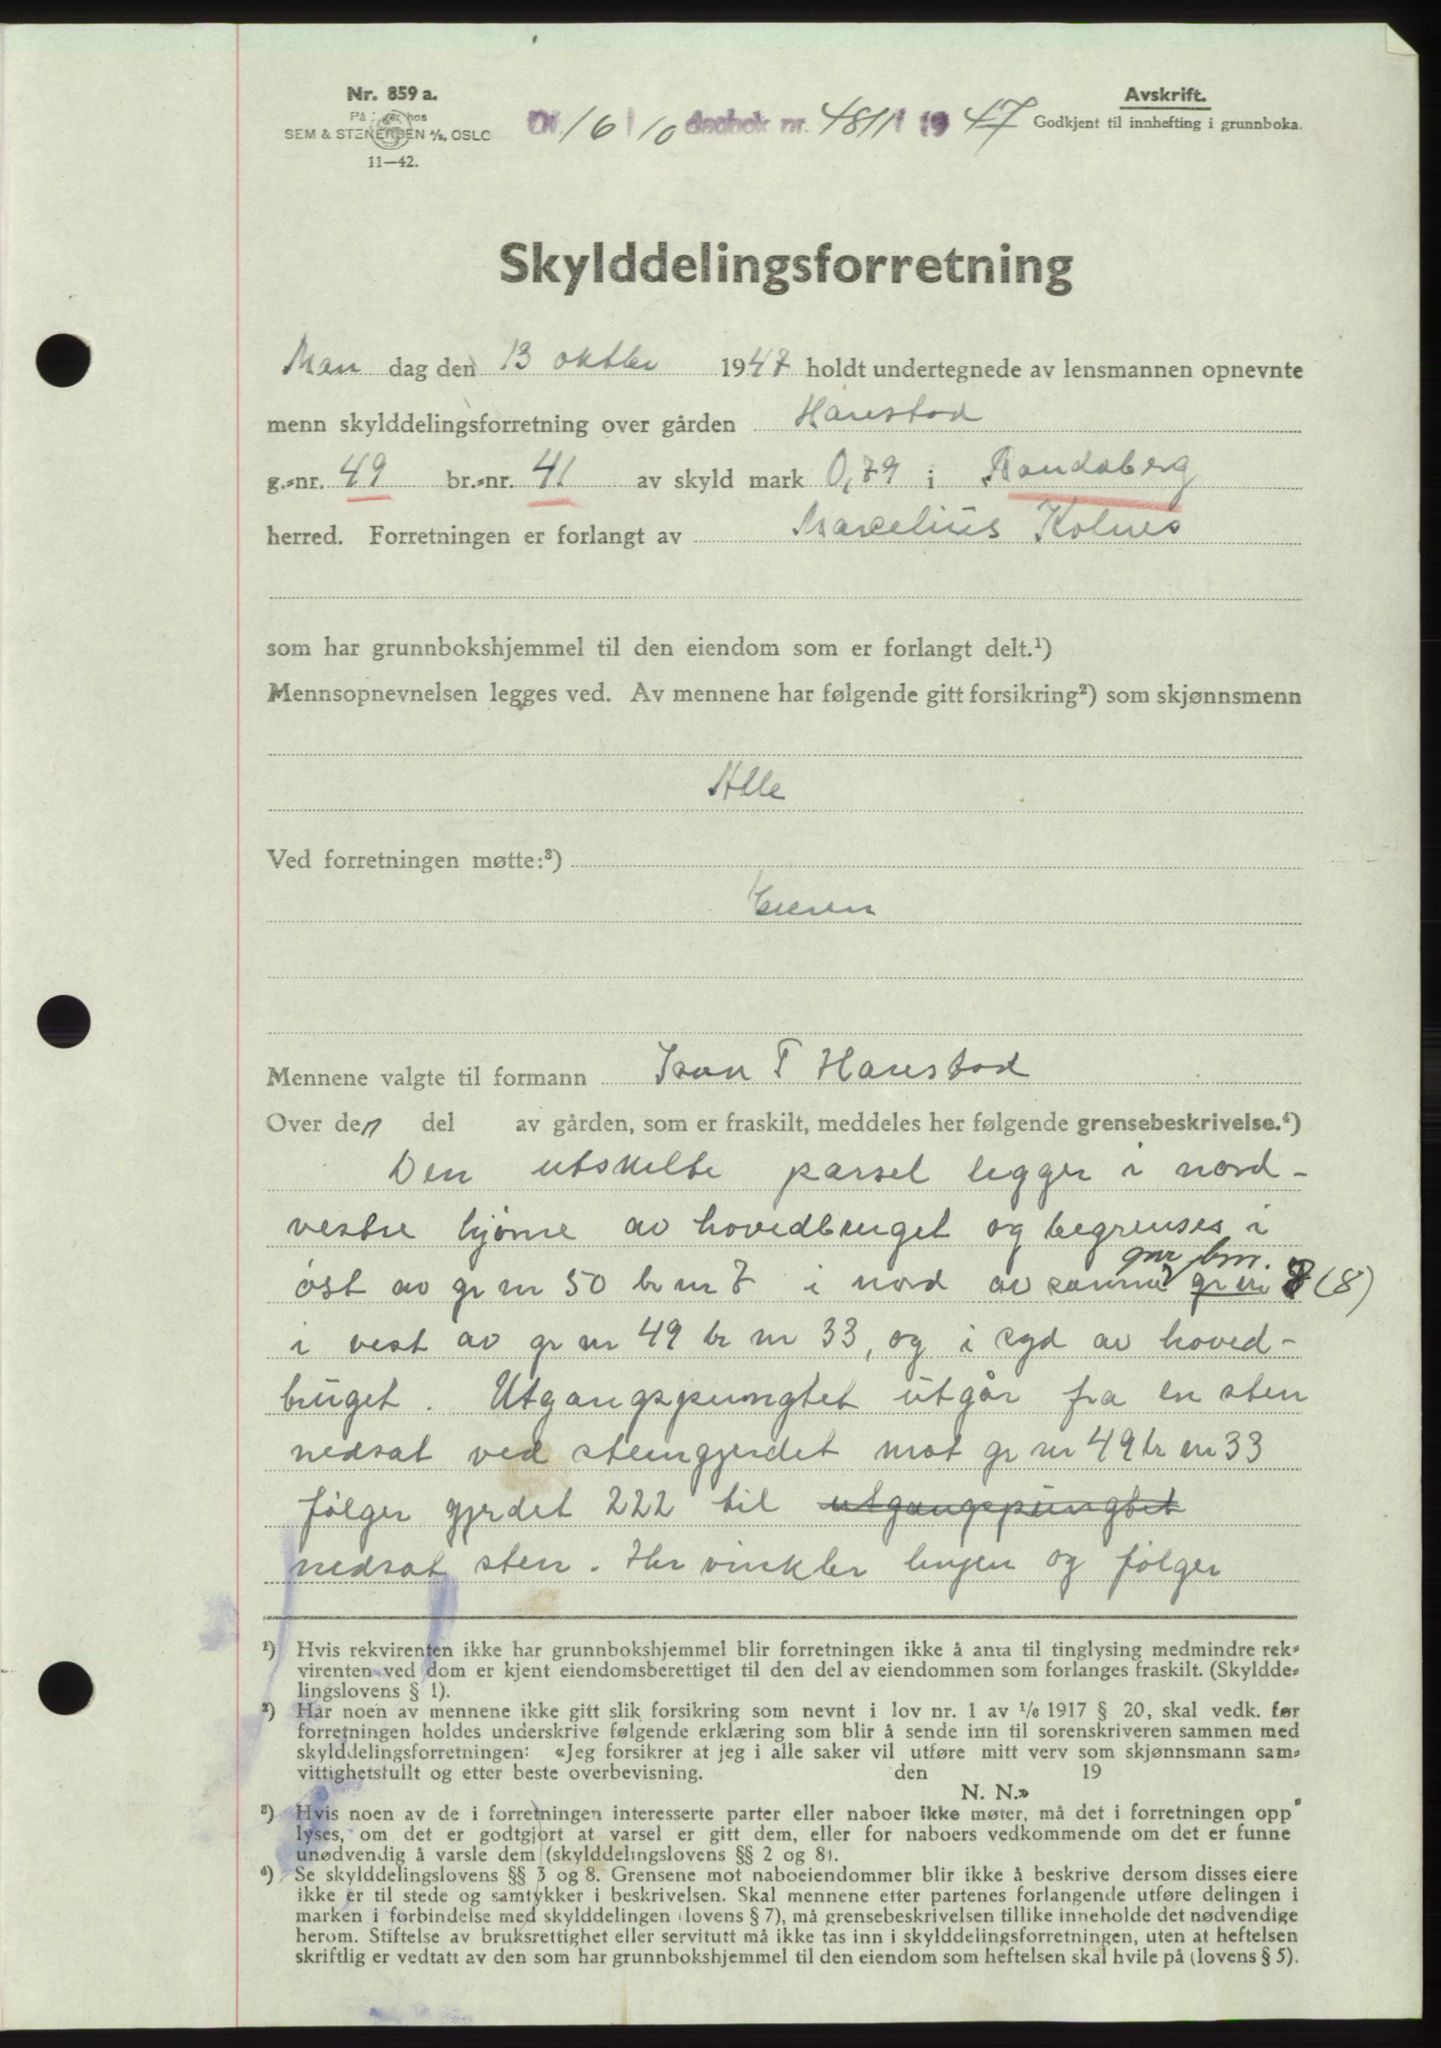 Nr. 859 a.
På lager hos
SEM & STENERSEN A/S, OSLO
11—42.
16/10 dagbok nr. 4811 1947
Avskrift.
Godkjent til innhefting i grunnboka.
Skylddelingsforretning
Man dag den 13 oktbr 1947 holdt undertegnede av lensmannen opnevnte
menn skylddelingsforretning over gården Harestad
g.-nr. 49 br.-nr. 41 av skyld mark 0,79 i Randaberg
herred. Forretningen er forlangt av Marselius Kolnes
som har grunnbokshjemmel til den eiendom som er forlangt delt.¹)
Mennsopnevnelsen legges ved. Av mennene har følgende gitt forsikring²) som skjønnsmenn
Alle
Ved forretningen møtte:³)
Eieren
Mennene valgte til formann Ivar T Harestad
Over den del av gården, som er fraskilt, meddeles her følgende grensebeskrivelse.⁴)
Den utskilte parsel legger i nord-
vestre hjørne av hovedbruget og begrenses i
gnr bnr.
øst av gr nr 50 br nr 7 i nord av samme gr nr 8 (8)
i vest av gr nr 49 br nr 33, og i syd av hoved-
bruget. Utgangspungtet utgår fra en sten
nedsat ved steingjerdet mot gr nr 49 br nr 33
følger gjerdet 222 til utgangspungtet
nedsat sten. Her vinkler linjen og følger
¹) Hvis rekvirenten ikke har grunnbokshjemmel blir forretningen ikke å anta til tinglysing medmindre rek-
virenten ved dom er kjent eiendomsberettiget til den del av eiendommen som forlanges fraskilt. (Skyldde-
lingslovens § 1).
²) Har noen av mennene ikke gitt slik forsikring som nevnt i lov nr. 1 av 1/6 1917 § 20, skal vedk. før
forretningen holdes underskrive følgende erklæring som blir å sende inn til sorenskriveren sammen med
skylddelingsforretningen: «Jeg forsikrer at jeg i alle saker vil utføre mitt verv som skjønnsmann sam-
vittighetsfullt og etter beste overbevisning. den 19
N. N.»
³) Hvis noen av de i forretningen interesserte parter eller naboer ikke møter, må det i forretningen opp
lyses, om det er godtgjort at varsel er gitt dem, eller for naboers vedkommende om det er funne
unødvendig å varsle dem (skylddelingslovens §§ 2 og 8).
⁴) Se skylddelingslovens §§ 3 og 8. Grensene mot naboeiendommer blir ikke å beskrive dersom disses eiere
ikke er til stede og samtykker i beskrivelsen. Skal mennene etter partenes forlangende utføre delingen i
marken i forbindelse med skylddelingen (lovens § 7), må grensebeskrivelsen tillike inneholde det nødvendige
herom. Stiftelse av bruksrettighet eller servitutt må ikke tas inn i skylddelingsforretningen, uten at heftelsen
skriftlig er vedtatt av den som har grunnbokshjemmel til den eiendom som heftelsen skal hvile på (lovens § 5).